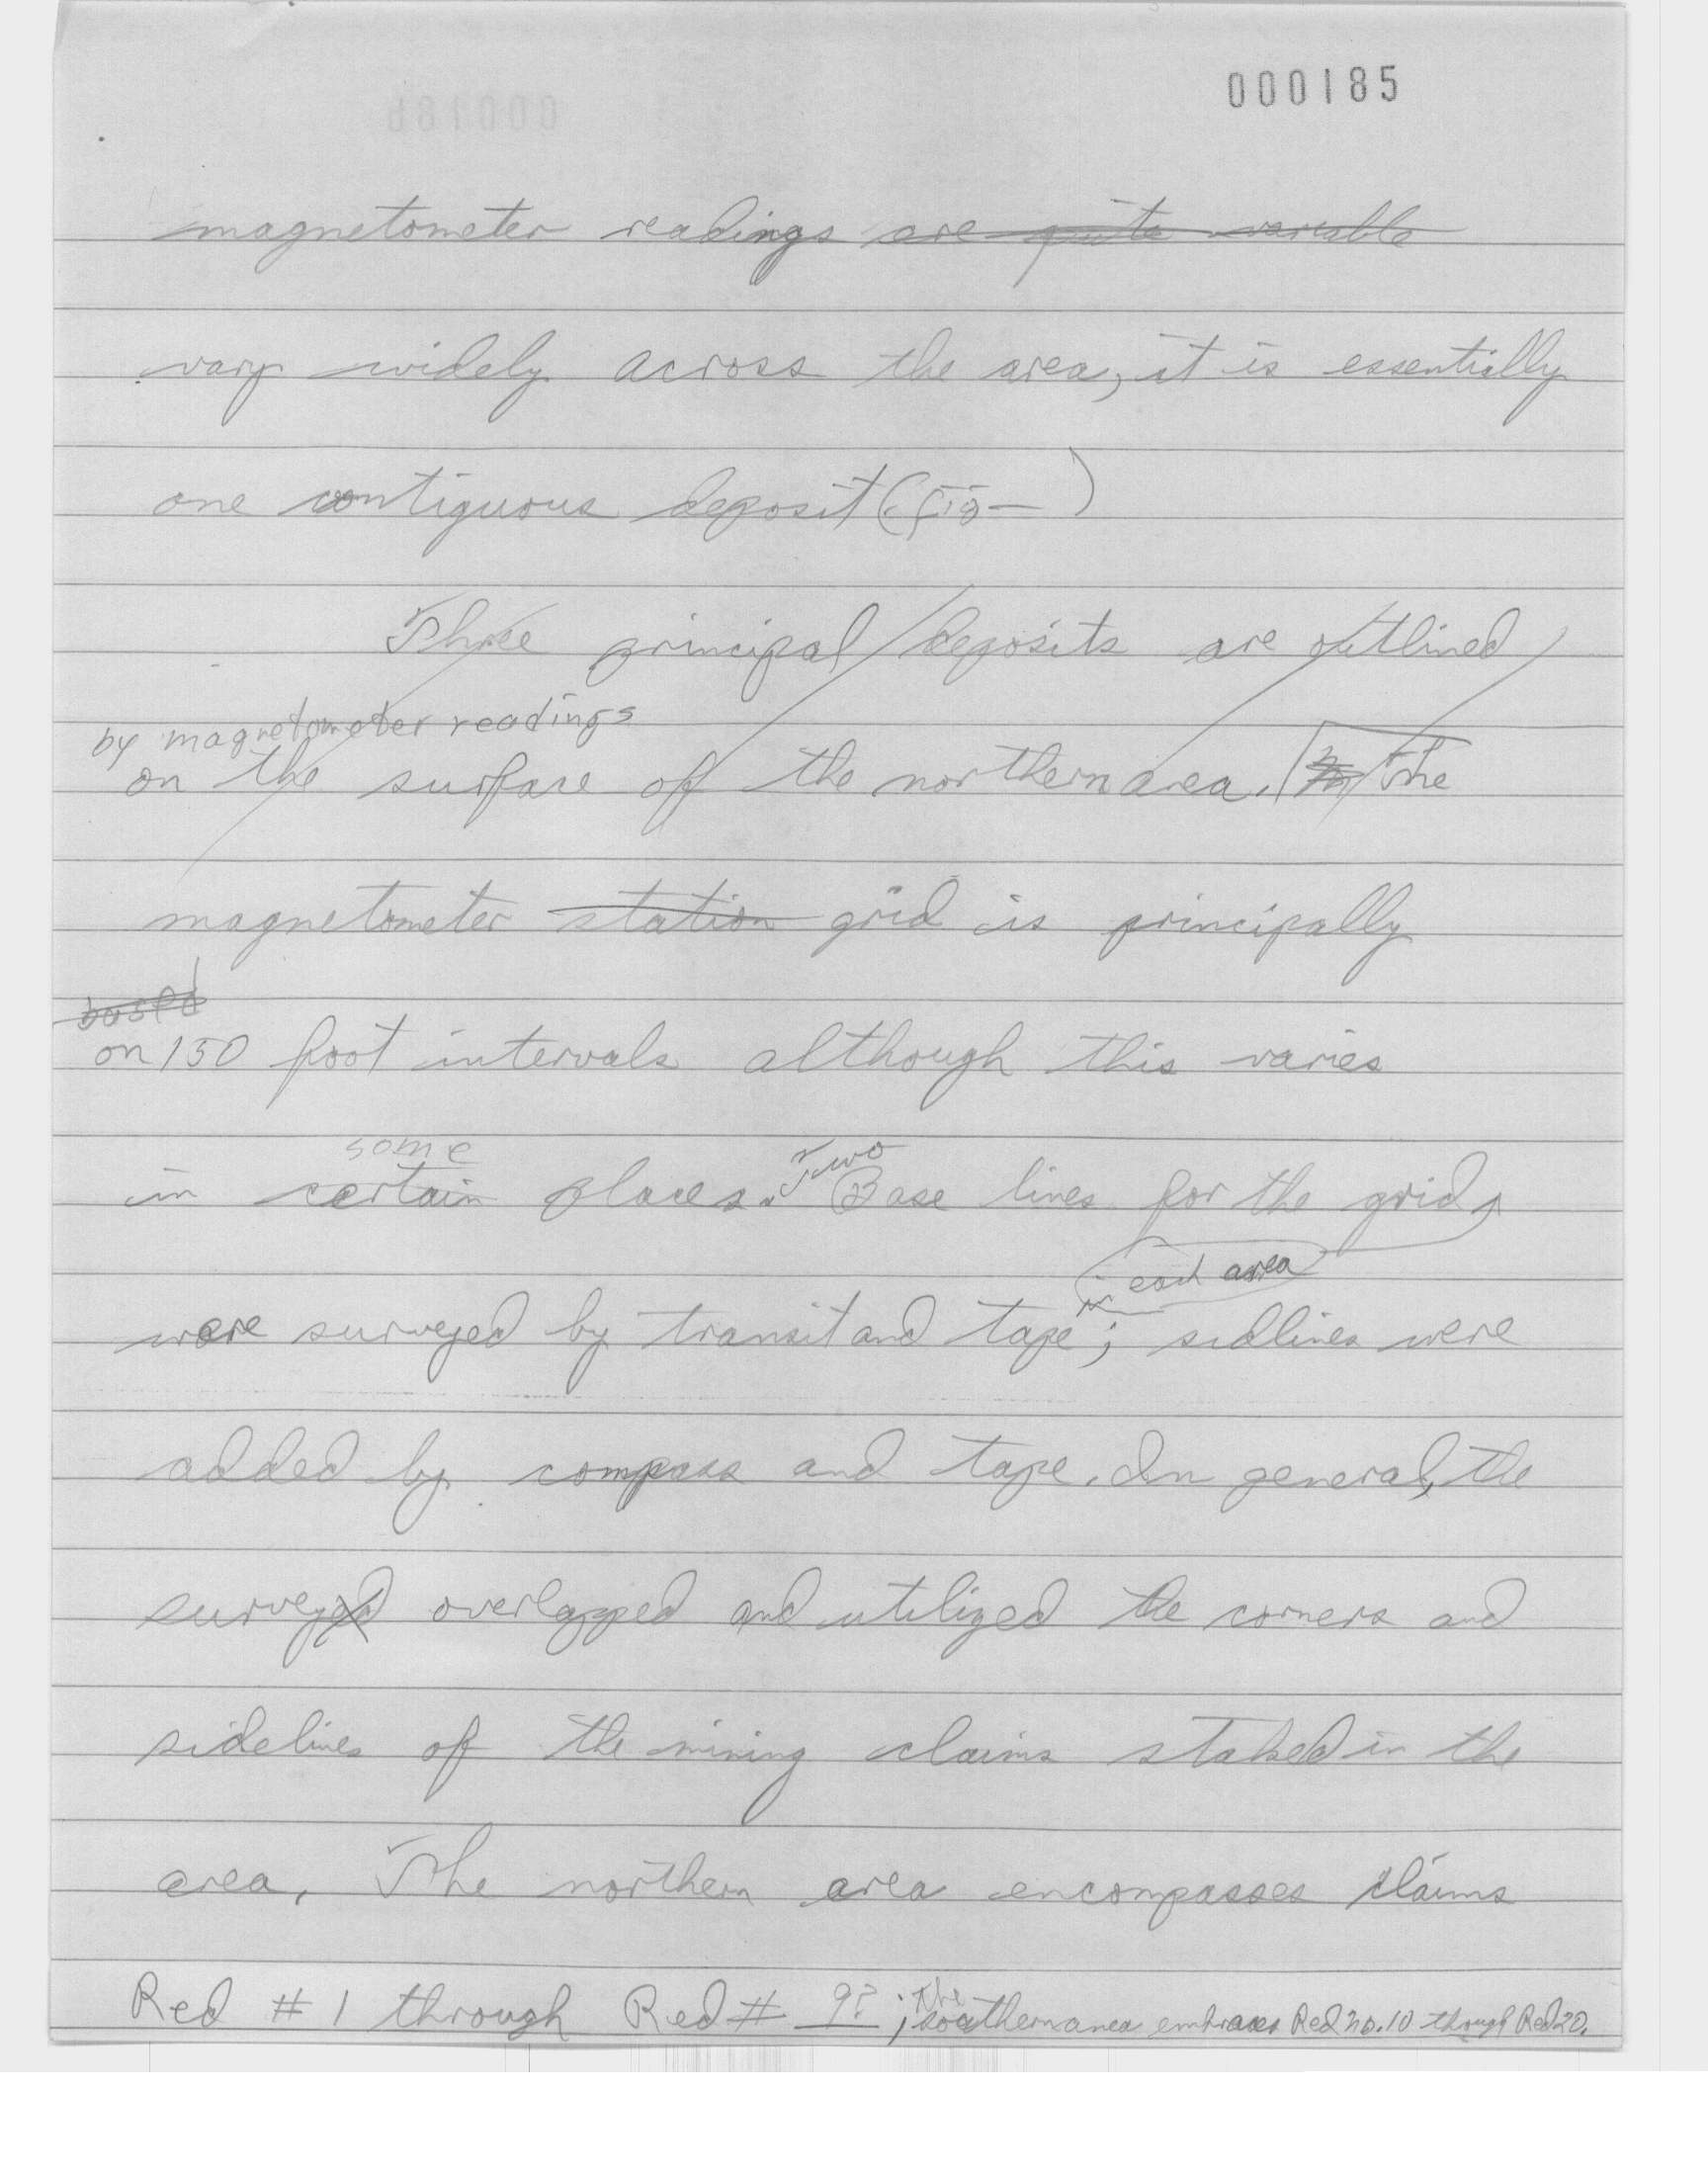 000185
magnetometer readings are quite variable
vary widely across the area, it is essentially
one contiguous deposit (Fig — )
Three principal deposits are outlined
by magnetometer readings
on the surface of the northern area. In The
magnetometer station grid is principally
based
on 150 foot intervals although this varies
some
in certain places. Two Base lines for the grid
in each area
were surveyed by transit and tape; sidlines were
added by compass and tape. In general, the
surveyed overlapped and utilized the corners and
sidelines of the mining claims staked in the
area. The northern area encompasses claims
Red # 1 through Red # 9?; the southern area embraces Red No. 10 though Red 20.